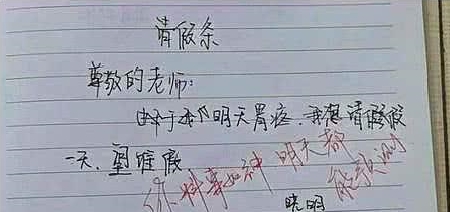 请假条
尊敬的老师:
由于我明天胃疼,我想请假
一天,望准假
你料事如神 明天都
能预测
晓明